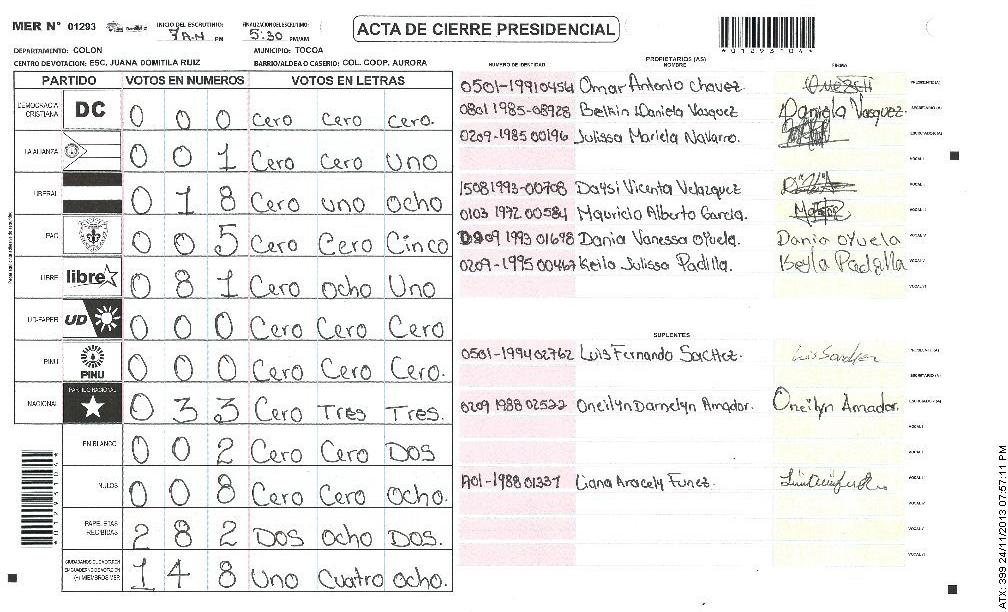 MER N° 01293 INICIO DEL ESCRUTINIO: 7 A.M PM FINALIZACION DEL ESCRUTINIO: 5:30 PM/AM
ACTA DE CIERRE PRESIDENCIAL
DEPARTAMENTO: COLON MUNICIPIO: TOCOA
CENTRO DE VOTACION: ESC. JUANA DOMITILA RUIZ BARRIO/ALDEA O CASERIO: COL. COOP. AURORA
PARTIDO VOTOS EN NUMEROS VOTOS EN LETRAS
DEMOCRACIA CRISTIANA DC 0 0 0 Cero Cero Cero.
LA ALIANZA 0 0 1 Cero Cero Uno
LIBERAL 0 1 8 Cero uno ocho
PAC 0 0 5 Cero Cero Cinco
LIBRE libre 0 8 1 Cero ocho Uno
UD-FAPER UD 0 0 0 Cero Cero Cero
PINU PINU 0 0 0 Cero Cero Cero.
NACIONAL PARTIDO NACIONAL 0 3 3 Cero Tres Tres.
EN BLANCO 0 0 2 Cero Cero Dos
NULOS 0 0 8 Cero Cero Ocho.
PAPELETAS RECIBIDAS 2 8 2 Dos ocho Dos.
(+) MIEMBROS MER 1 4 8 Uno Cuatro ocho.
PROPIETARIOS (AS)
NUMERO DE IDENTIDAD NOMBRE FIRMA
0501-19910454 Omar Antonio Chavez. PRESIDENTE (A)
0801 1985-08928 Belkin Daniela Vasquez Daniela Vasquez. SECRETARIO (A)
0209-1985 00196 Julissa Mariela Navarro. ESCRUTADOR (A)
VOCAL I
1508 1993-00708 Daysi Vicenta Velazquez
0103 1972 00584 Mauricio Alberto Garcia.
0209 1993 01698 Dania Vanessa oyuela. Dania oyuela
0209-1995 00467 Keila Julissa Padilla. Keyla Padilla
SUPLENTES
0501-1994 02762 Luis Fernando Sanchez. Luis Sanchez PRESIDENTE (A)
SECRETARIO (A)
0209 1988 02522 Oneilyn Darnelyn Amador. Oneilyn Amador. ESCRUTADOR (A)
VOCAL I
1201-1988 01331 Liana Aracely Funez.
ATX: 399 24/11/2013 07:57:11 PM